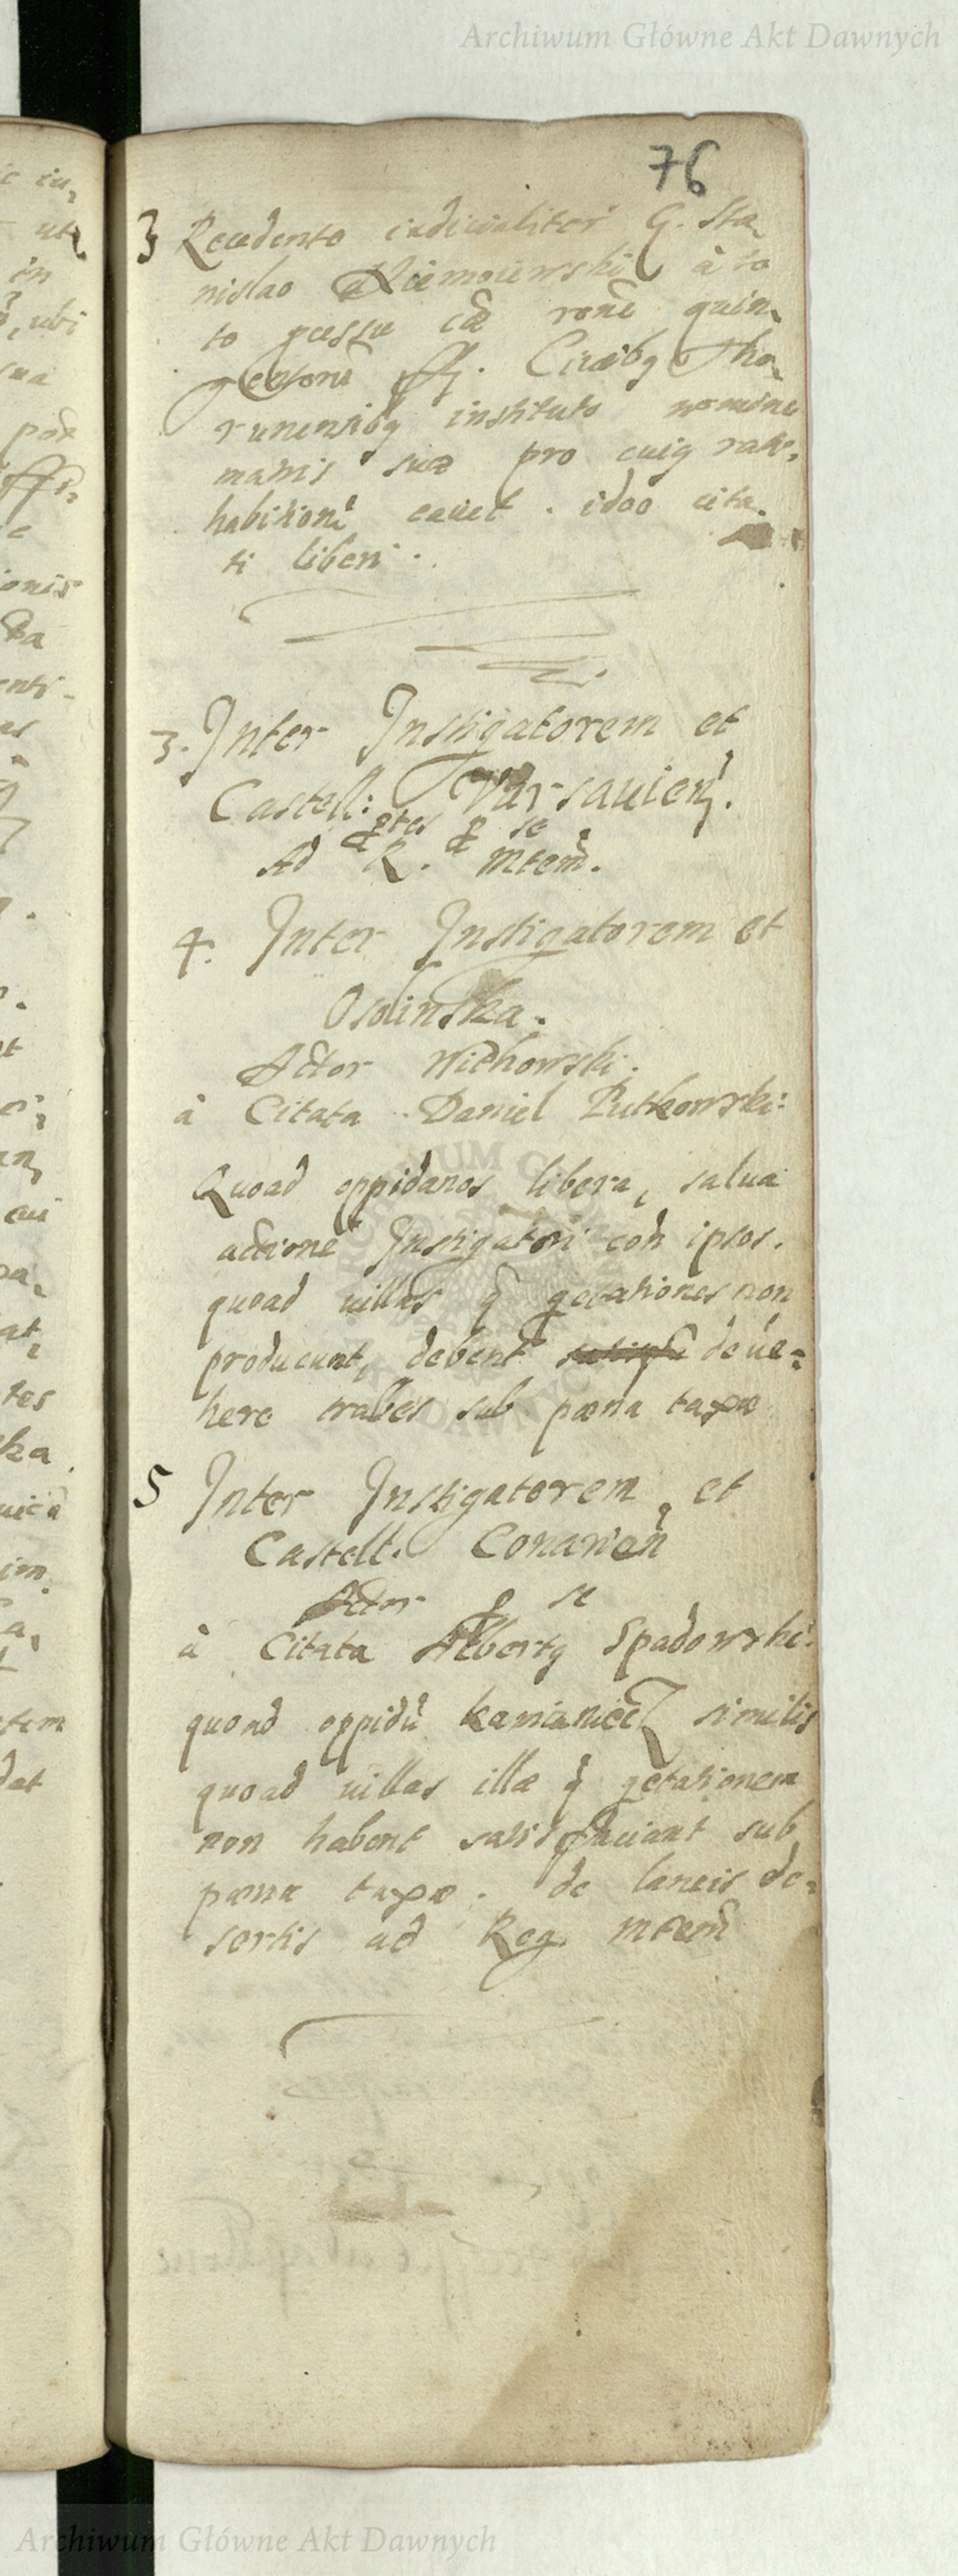 Archiwum Główne Akt Dawnych
76
3 Recedente iudicialiter G. Sta
nislao Niemoiewski à to
to gressu cãe ronẽ quin
gentorũ ff. Ciuibq Tho
runensibq instituto nomine
matris suæ pro cuiq rati
habitionẽ cauet. ideo cita
ti liberi.
3. Inter Instigatorem et
Castell: Varsauien.
ptes p se
Ad R. Mtem.
4. Inter Instigatorem et
Osolinska.
Actor Wichowski.
à Citata Daniel Rutkowski:
Quoad oppidanos libera, salua
actione Instigatori con ipsos.
quoad uillas q̃ qetationes non
producunt, debent deue=
here trabes sub pœna taxæ
5 Inter Instigatorem et
Castell. Conarien
Actor p se
à Citata Albertq Spadowski:
quoad oppidũ Kamieniecz similis
quoad uillas illæ q̃ qetationem
non habent satisfaciant sub
pœna taxæ. de laneis de=
sertis ad Reg. Mtem
Archiwum Główne Akt Dawnych